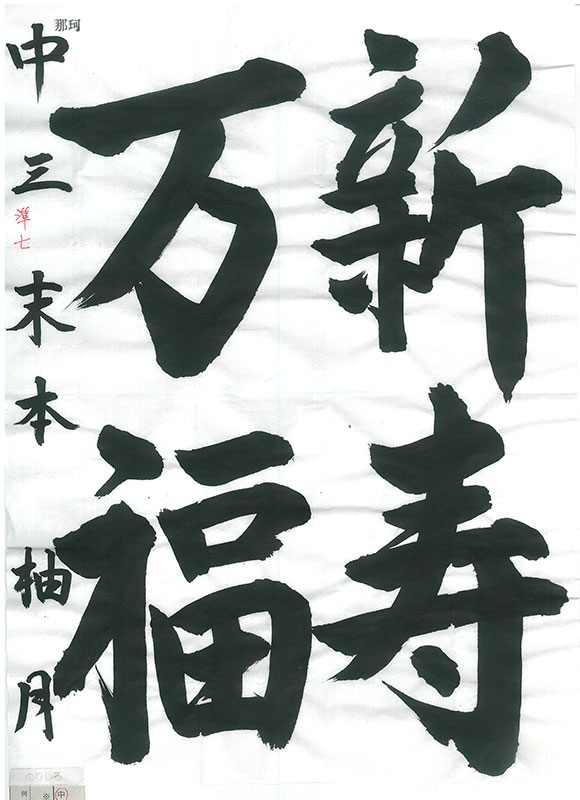 新寿
万福
那珂
中三末本柚月
準七
のりしろ
例 ※ 中